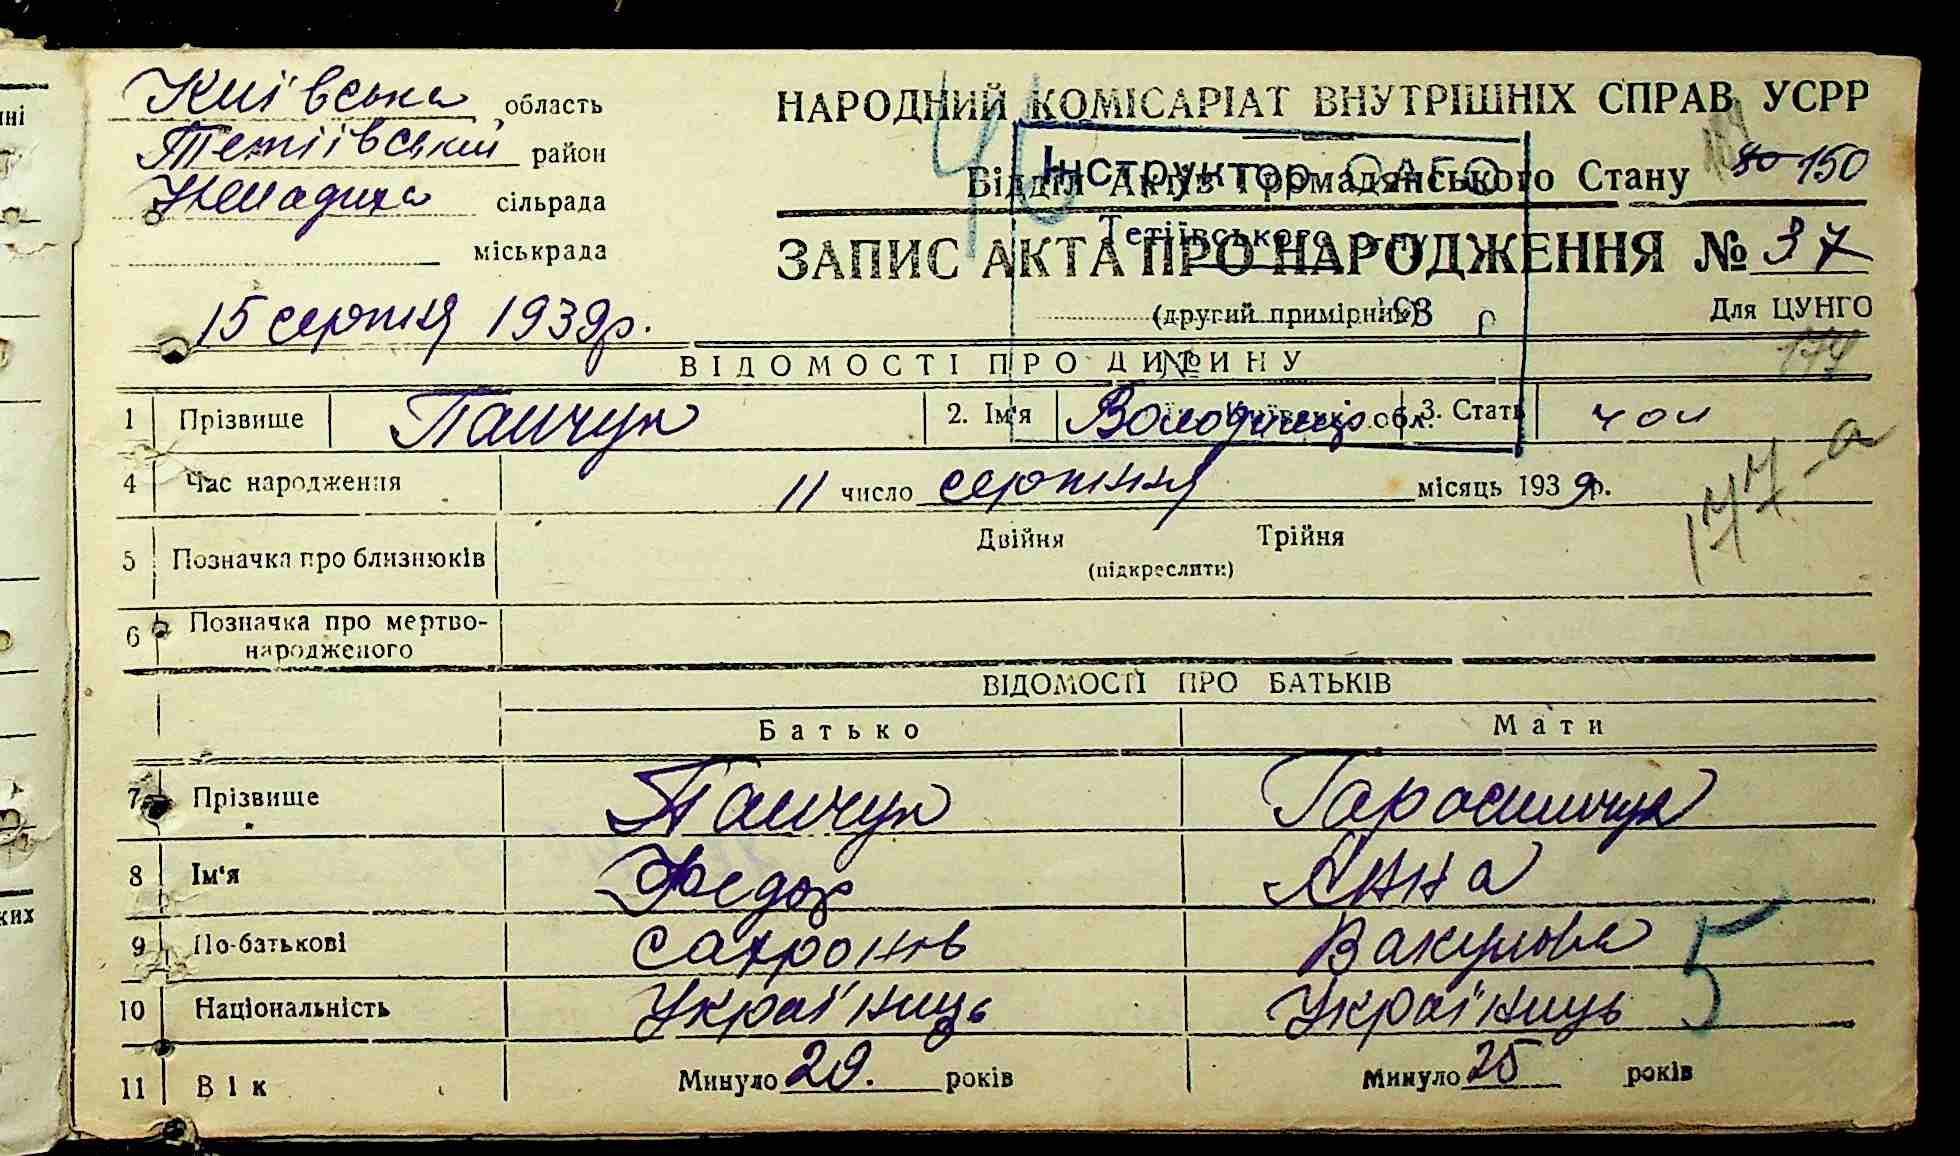 Київська область
Тетіївський район
Кашадиха сільрада
міськрада
15 серпня 1939р.
НАРОДНИЙ КОМІСАРІАТ ВНУТРІШНІХ СПРАВ УСРР
Відділ Актів Громадянського Стану 150
ЗАПИС АКТА ПРО НАРОДЖЕННЯ № 37
(другий примірник)
Для ЦУНГО
Інструктор ОАГС
Тетіївського р-ну
193 р
№
Київської обл.
174
ВІДОМОСТІ ПРО ДИТИНУ
1 Прізвище Панчук 2. Ім'я Володимир 3. Стать чол
4 Час народження 11 число серпння місяць 1939р.
177-а
5 Позначка про близнюків Двійня Трійня
(підкреслити)
6 Позначка про мертво-
народженого
ВІДОМОСТІ ПРО БАТЬКІВ
Батько Мати
7 Прізвище Панчук Гарасимчук
8 Ім'я Федор Анна
9 По-батькові Сахронів Вакулова
10 Національність Україниць Україниць 5
11 Вік Минуло 29. років Минуло 25 років